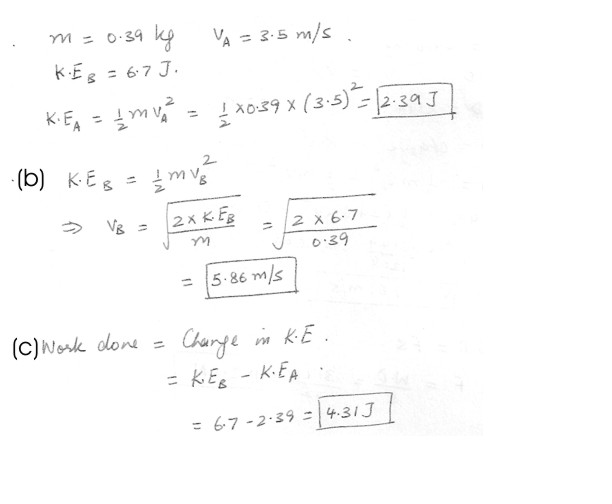 m = 0.39 kg V_A = 3.5 m/s.
K.E_B = 6.7 J.
K.E_A = 1/2 m v_A^2 = 1/2 × 0.39 × (3.5)^2 = 2.39 J
(b) K.E_B = 1/2 m v_B^2
⇒ V_B = √(2 × K.E_B / m) = √(2 × 6.7 / 0.39)
= 5.86 m/s
(c) Work done = Change in K.E.
= K.E_B - K.E_A
= 6.7 - 2.39 = 4.31 J